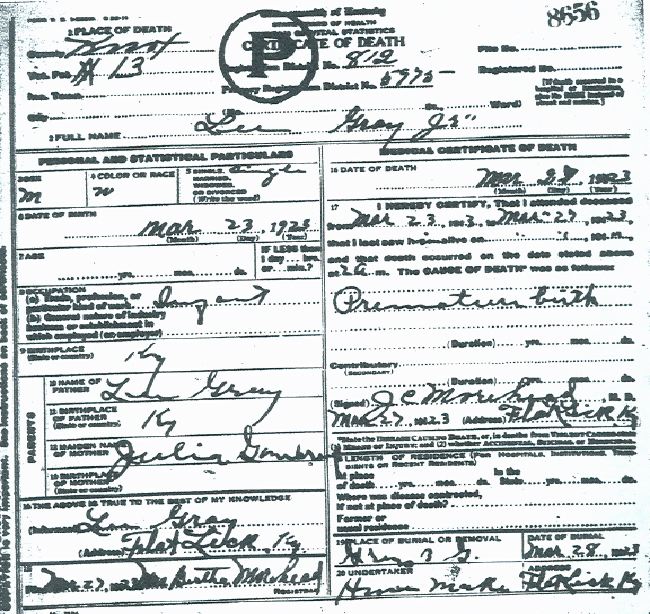 8656
1 PLACE OF DEATH
County Knox
Commonwealth of Kentucky
BUREAU OF VITAL STATISTICS
CERTIFICATE OF DEATH
P
File No.
Vot. Pct. # 13
Registration District No. 812
Registered No.
Inc. Town
Primary Registration District No. 5975
City
(No. St., Ward)
[If death occurred in a hospital or institution, give its NAME instead of street and number.]
2 FULL NAME Lee Gray Jr
PERSONAL AND STATISTICAL PARTICULARS
3 SEX M
4 COLOR OR RACE W
5 SINGLE, MARRIED, WIDOWED, OR DIVORCED (Write the word) Single
6 DATE OF BIRTH
Mar 23, 1923
(Month) (Day) (Year)
7 AGE
yrs. mos. ds.
IF LESS than 1 day ... hrs. or ... min.?
8 OCCUPATION
(a) Trade, profession, or particular kind of work Infant
(b) General nature of industry business or establishment in which employed (or employer)
9 BIRTHPLACE (State or country) Ky
PARENTS
10 NAME OF FATHER Lee Gray
11 BIRTHPLACE OF FATHER (State or country) Ky
12 MAIDEN NAME OF MOTHER Julia
13 BIRTHPLACE OF MOTHER (State or country)
14 THE ABOVE IS TRUE TO THE BEST OF MY KNOWLEDGE
(Informant) Gray
(Address) Flat Lick, Ky
15
Mar 27, 1923 Mrs Bertha Morehead
REGISTRAR
MEDICAL CERTIFICATE OF DEATH
16 DATE OF DEATH
Mar 27, 1923
(Month) (Day) (Year)
17 I HEREBY CERTIFY, That I attended deceased
from Mar 23, 1923, to Mar 27, 1923,
that I last saw him alive on
and that death occurred on the date stated above
at 2 a m. The CAUSE OF DEATH* was as follows:
Premature birth
(Duration) yrs. mos. ds.
Contributory
(SECONDARY)
(Duration) yrs. mos. ds.
(Signed) J C Morehead, M. D.
Mar 27, 1923 (Address) Flat Lick Ky
18 LENGTH OF RESIDENCE (FOR HOSPITALS, INSTITUTIONS, TRANSIENTS OR RECENT RESIDENTS)
At place of death yrs. mos. ds. In the State yrs. mos. ds.
Where was disease contracted,
If not at place of death?
Former or usual residence
19 PLACE OF BURIAL OR REMOVAL
DATE OF BURIAL
Mar 28, 1923
20 UNDERTAKER
Home Make
ADDRESS
Flat Lick Ky